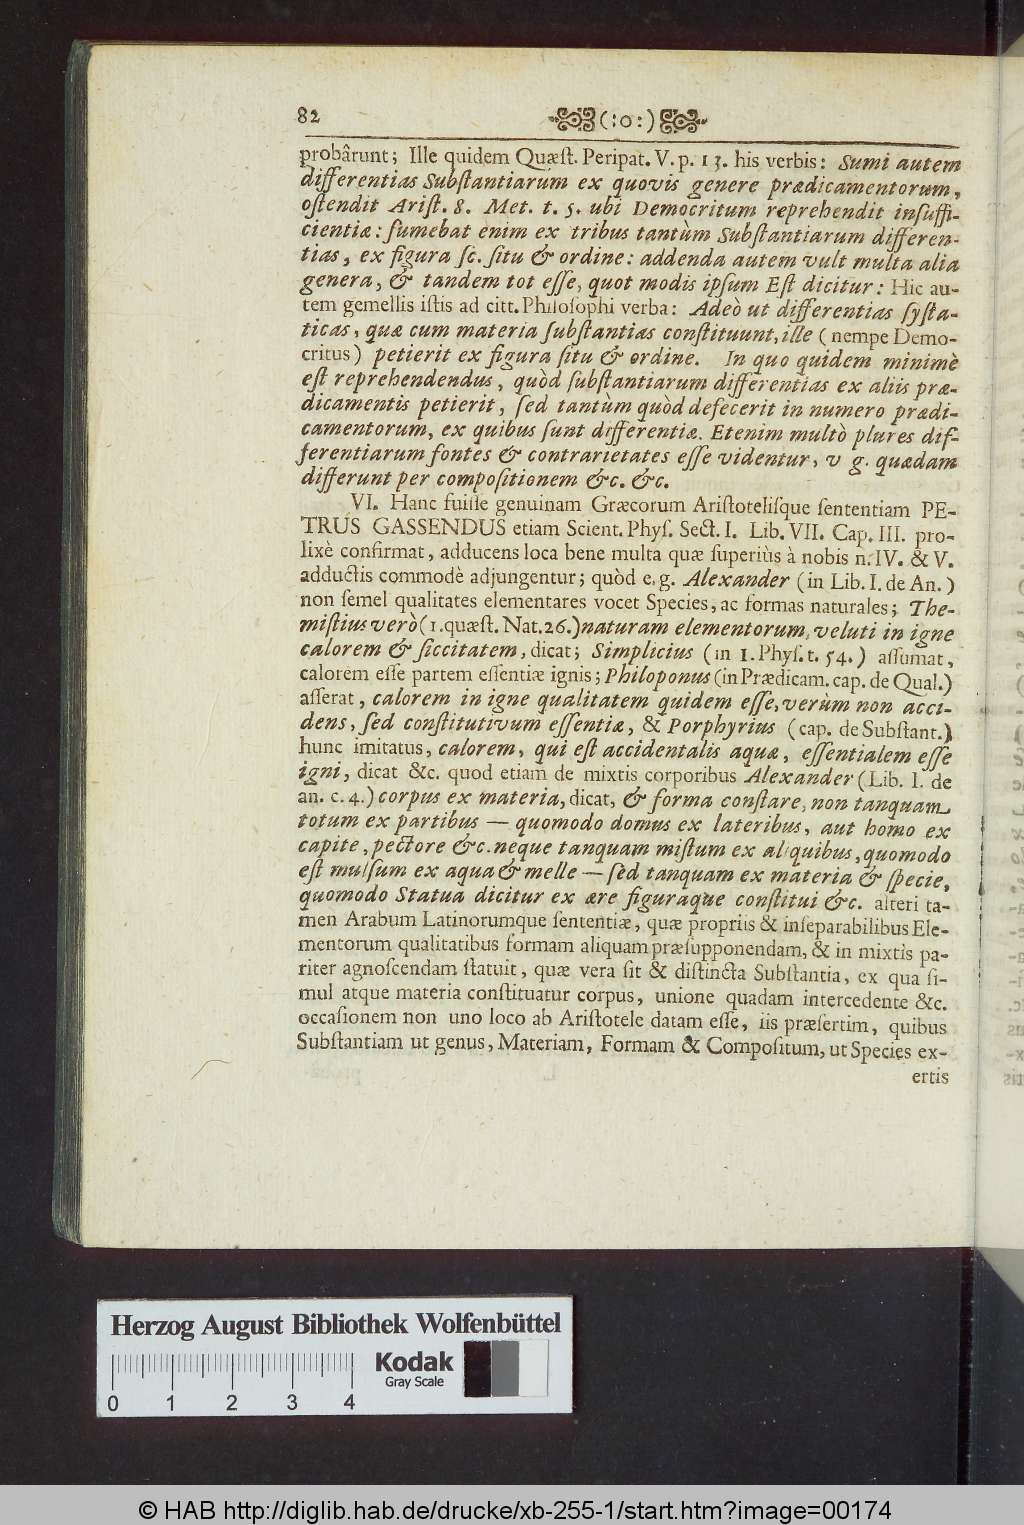 82 (:o:)
probârunt; Ille quidem Quæſt. Peripat. V. p. 13. his verbis: Sumi autem
differentias Subſtantiarum ex quovis genere prædicamentorum,
oſtendit Ariſt. 8. Met. t. 5. ubi Democritum reprehendit inſuffi-
cientiæ: ſumebat enim ex tribus tantùm Subſtantiarum differen-
tias, ex figura ſc. ſitu & ordine: addenda autem vult multa alia
genera, & tandem tot eſſe, quot modis ipſum Eſt dicitur: Hic au-
tem gemellis iſtis ad citt. Philoſophi verba: Adeò ut differentias ſyſta-
ticas, quæ cum materia ſubſtantias conſtituunt, ille (nempe Demo-
critus) petierit ex figura ſitu & ordine. In quo quidem minimè
eſt reprehendendus, quòd ſubſtantiarum differentias ex aliis præ-
dicamentis petierit, ſed tantùm quòd defecerit in numero prædi-
camentorum, ex quibus ſunt differentiæ. Etenim multò plures dif-
ferentiarum fontes & contrarietates eſſe videntur, v g. quædam
differunt per compoſitionem &c. &c.
VI. Hanc fuiſſe genuinam Græcorum Ariſtoteliſque ſententiam PE-
TRUS GASSENDUS etiam Scient. Phyſ. Sect. I. Lib. VII. Cap. III. pro-
lixè confirmat, adducens loca bene multa quæ ſuperiùs à nobis n. IV. & V.
adductis commodè adjungentur; quòd e. g. Alexander (in Lib. I. de An.)
non ſemel qualitates elementares vocet Species, ac formas naturales; The-
miſtius verò (1. quæſt. Nat. 26.) naturam elementorum, veluti in igne
calorem & ſiccitatem, dicat; Simplicius (in 1. Phyſ. t. 54.) aſſumat,
calorem eſſe partem eſſentiæ ignis; Philoponus (in Prædicam. cap. de Qual.)
aſſerat, calorem in igne qualitatem quidem eſſe, verùm non acci-
dens, ſed conſtitutivum eſſentiæ, & Porphyrius (cap. de Subſtant.)
hunc imitatus, calorem, qui eſt accidentalis aquæ, eſſentialem eſſe
igni, dicat &c. quod etiam de mixtis corporibus Alexander (Lib. I. de
an. c. 4.) corpus ex materia, dicat, & forma conſtare, non tanquam
totum ex partibus — quomodo domus ex lateribus, aut homo ex
capite, pectore &c. neque tanquam miſtum ex aliquibus, quomodo
eſt mulſum ex aqua & melle — ſed tanquam ex materia & ſpecie,
quomodo Statua dicitur ex ære figuraque conſtitui &c. alteri ta-
men Arabum Latinorumque ſententiæ, quæ propriis & inſeparabilibus Ele-
mentorum qualitatibus formam aliquam præſupponendam, & in mixtis pa-
riter agnoſcendam ſtatuit, quæ vera ſit & diſtincta Subſtantia, ex qua ſi-
mul atque materia conſtituatur corpus, unione quadam intercedente &c.
occaſionem non uno loco ab Ariſtotele datam eſſe, iis præſertim, quibus
Subſtantiam ut genus, Materiam, Formam & Compoſitum, ut Species ex-
ertis
Herzog August Bibliothek Wolfenbüttel
Kodak
Gray Scale
0 1 2 3 4
© HAB http://diglib.hab.de/drucke/xb-255-1/start.htm?image=00174